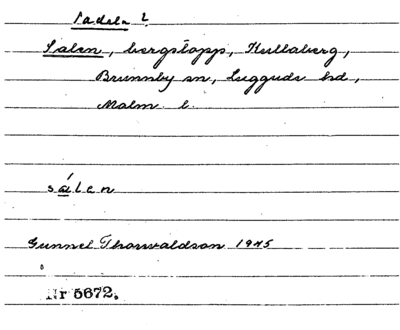 Sadeln?
Salen, bergstopp, Kullaberg,
Brunnby sn, Luggude hd,
Malm. l.
sálen
Gunnel Thorwaldson 1945
Nr 5672.